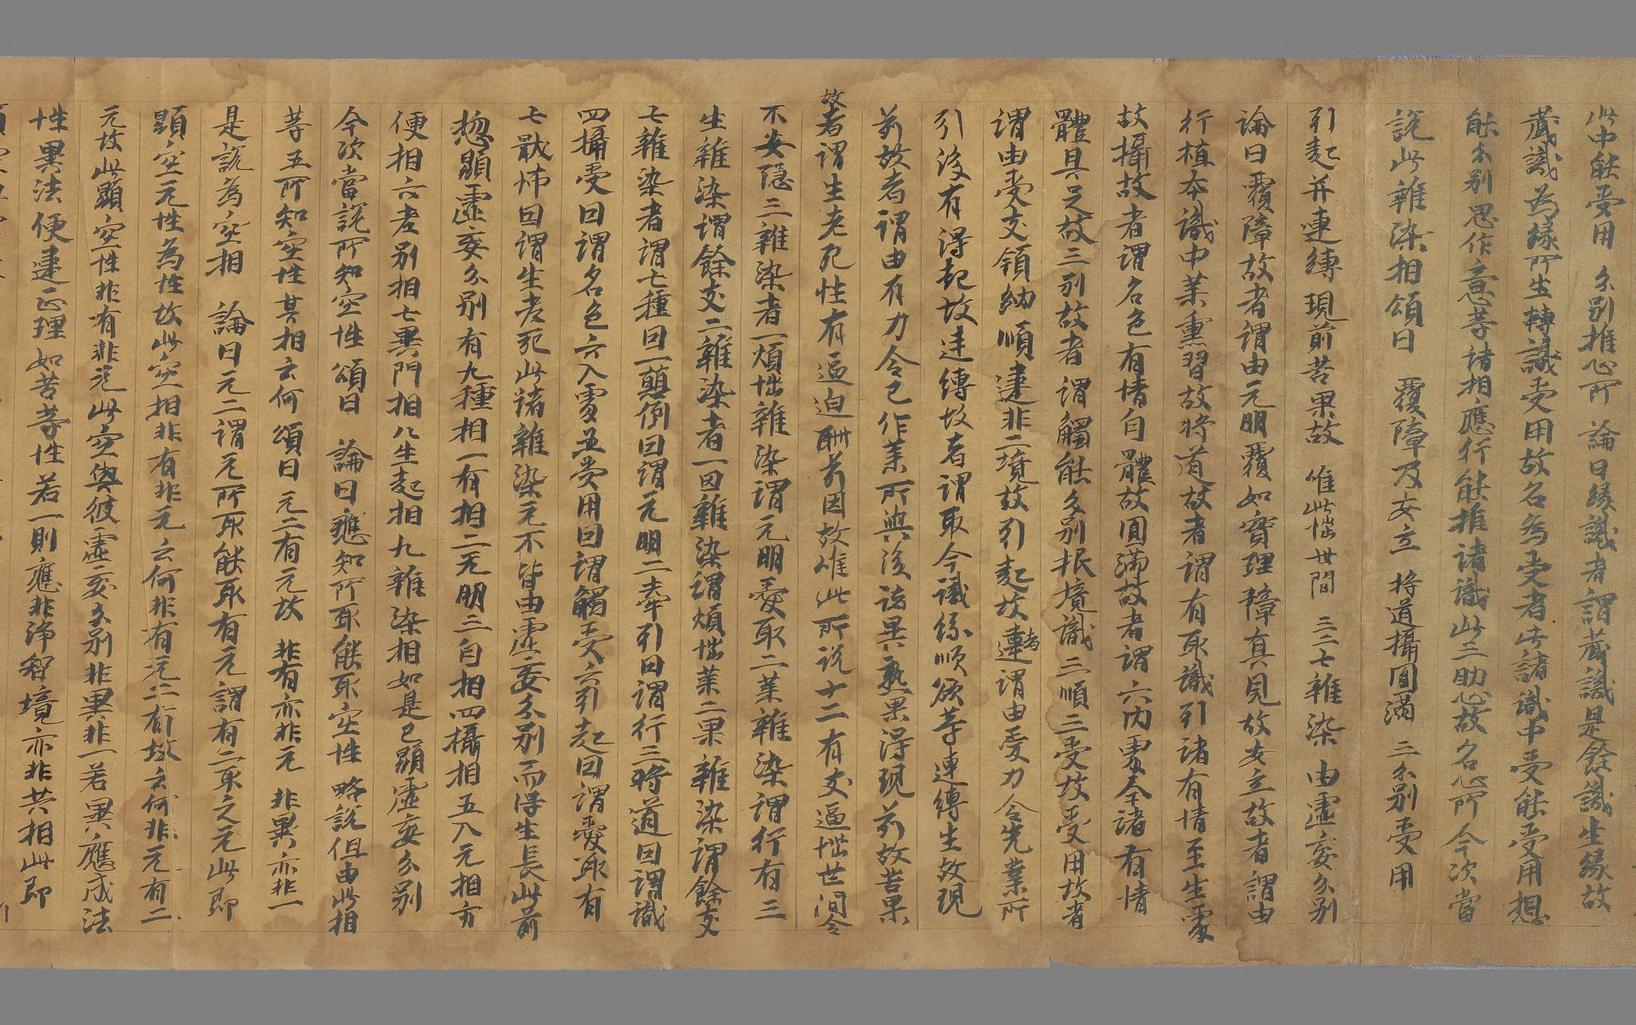 此中能受用 分別推心所 論曰緣識者謂藏識是餘識生緣故
藏識為緣所生轉識受用故名為受者此諸識中受能受用想
能分別思作意等諸相應行能推諸識此三助心故名心所今次當
說此雜染相頌曰 覆障及安立 將道攝圓滿 三分別受用
引起并連縛 現前苦果故 唯此惱世間 三二七雜染 由虛妄分別
論曰覆障故者謂由无明覆如實理障真見故安立故者謂由
行植本識中業熏習故將道故者謂有取識引諸有情至生處
故攝故者謂名色有情自體故圓滿故者謂六內處令諸有情
體具足故三別故者謂觸能分別根境識三順三受故受用故者
謂由受支領納順違非二境故引起故者謂由愛力令先業所
引後有得起故連縛故者謂取令識緣順欲等連縛生故現
前故者謂由有力令已作業所與後該異熟果得現前故苦果
故者謂生老死性有逼迫酬前因故唯此所說十二有支逼惱世間令
不安隱三雜染者一煩惱雜染謂无明愛取二業雜染謂行有三
生雜染謂餘支二雜染者一因雜染謂煩惱業二果雜染謂餘支
七雜染者謂七種因一顛倒因謂无明二牽引因謂行三將道因謂識
四攝受因謂名色六入處五受用因謂觸受六引起因謂愛取有
七厭怖因謂生老死此諸雜染无不皆由虛妄分別而得生長此前
惣顯虛妄分別有九種相一有相二无明三自相四攝相五入无相方
便相六差別相七異門相八生起相九雜染相如是已顯虛妄分別
今次當說所知空性頌曰 論曰應知所取能取空性 略說但由此相
等五所知空性其相云何頌曰 无二有无故 非有亦非无 非異亦非一
是說為空相 論曰无二謂无所取能取有无謂有二取之无此即
顯空无性為性故此空相非有非无云何非有无二有故云何非无有二
无故此顯空性非有非无此空與彼虛妄分別非異非一若異應成法
性異法便違正理如苦等性若一則應非淨智境亦非共相此即